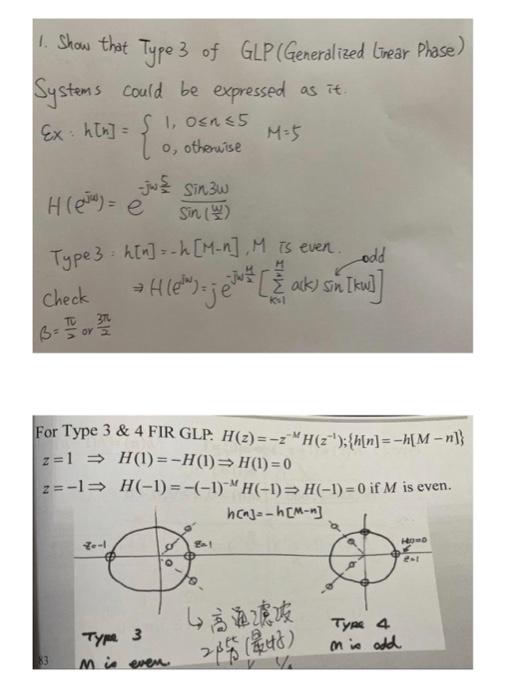 1. Show that Type 3 of GLP (Generalized Linear Phase)
Systems could be expressed as it.
Ex : h[n] = { 1, 0≤n≤5
0, otherwise M=5
H(e^{jω}) = e^{-jω 5/2} sin3ω / sin(ω/2)
Type 3 : h[n] = -h[M-n], M is even.
odd
Check ⇒ H(e^{jω}) = j e^{-jω M/2} [ Σ_{k=1}^{M/2} a(k) sin[kω] ]
β = π/2 or 3π/2
For Type 3 & 4 FIR GLP: H(z) = -z^{-M} H(z^{-1}); {h[n] = -h[M-n]}
z = 1 ⇒ H(1) = -H(1) ⇒ H(1) = 0
z = -1 ⇒ H(-1) = -(-1)^{-M} H(-1) ⇒ H(-1) = 0 if M is even.
h[n] = -h[M-n]
z=-1 z=1 H(1)=0
z=1
↳ 高通濾波
Type 3 Type 4
M is even M is odd
83